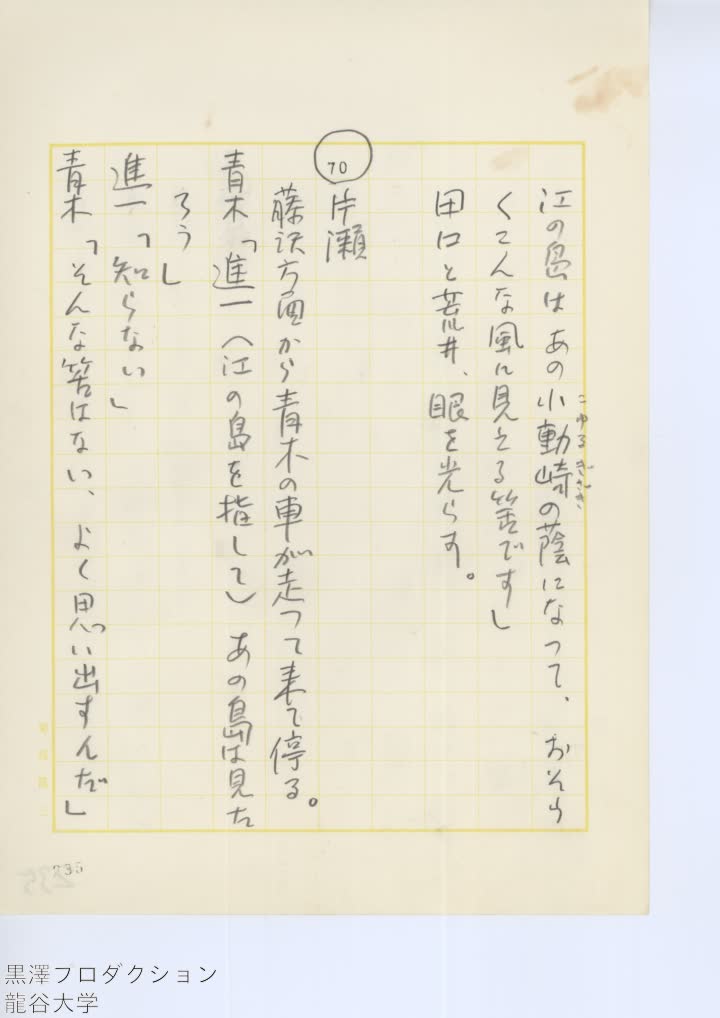 江の島はあの小動崎の蔭になって、おそら
こゆるぎさき
くこんな風に見える筈です」
田口と荒井、眼を光らす。
70
片瀬
藤沢方面から青木の車が走って来て停る。
青木「進一（江の島を指して）あの島は見た
ろう」
進一「知らない」
青木「そんな筈はない、よく思い出すんだ」
235
黒澤プロダクション
龍谷大学